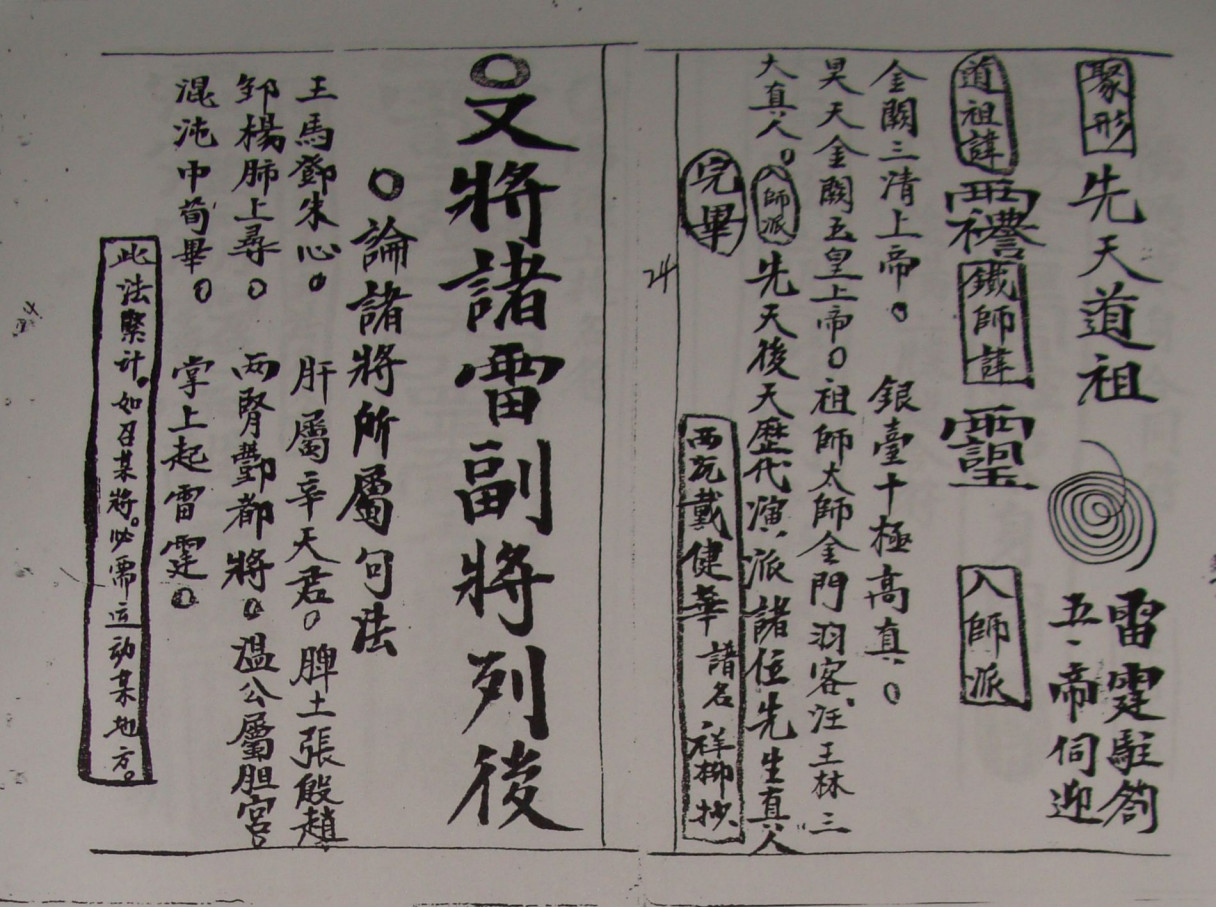 聚形 先天道祖 雷霆駐劄
五帝伺迎
道祖諱 鐵師諱 入師派
金闕三清上帝。銀臺十極高真。
昊天金闕玉皇上帝。祖師太師金門羽客汪王林三
大真人。入師派 先天後天歷代演派諸位先生真人
完畢 西坑戴健華諸名祥柳抄
24
又將諸雷副將列後
論諸將所屬句法
王馬鄧朱心。肝屬辛天君。脾土張殷趙
鄒楊肺上尋。兩腎酆都將。溫公屬胆宮。
混沌中荀畢。掌上起雷霆。
此法緊计。如召某將。必需运动某地方。